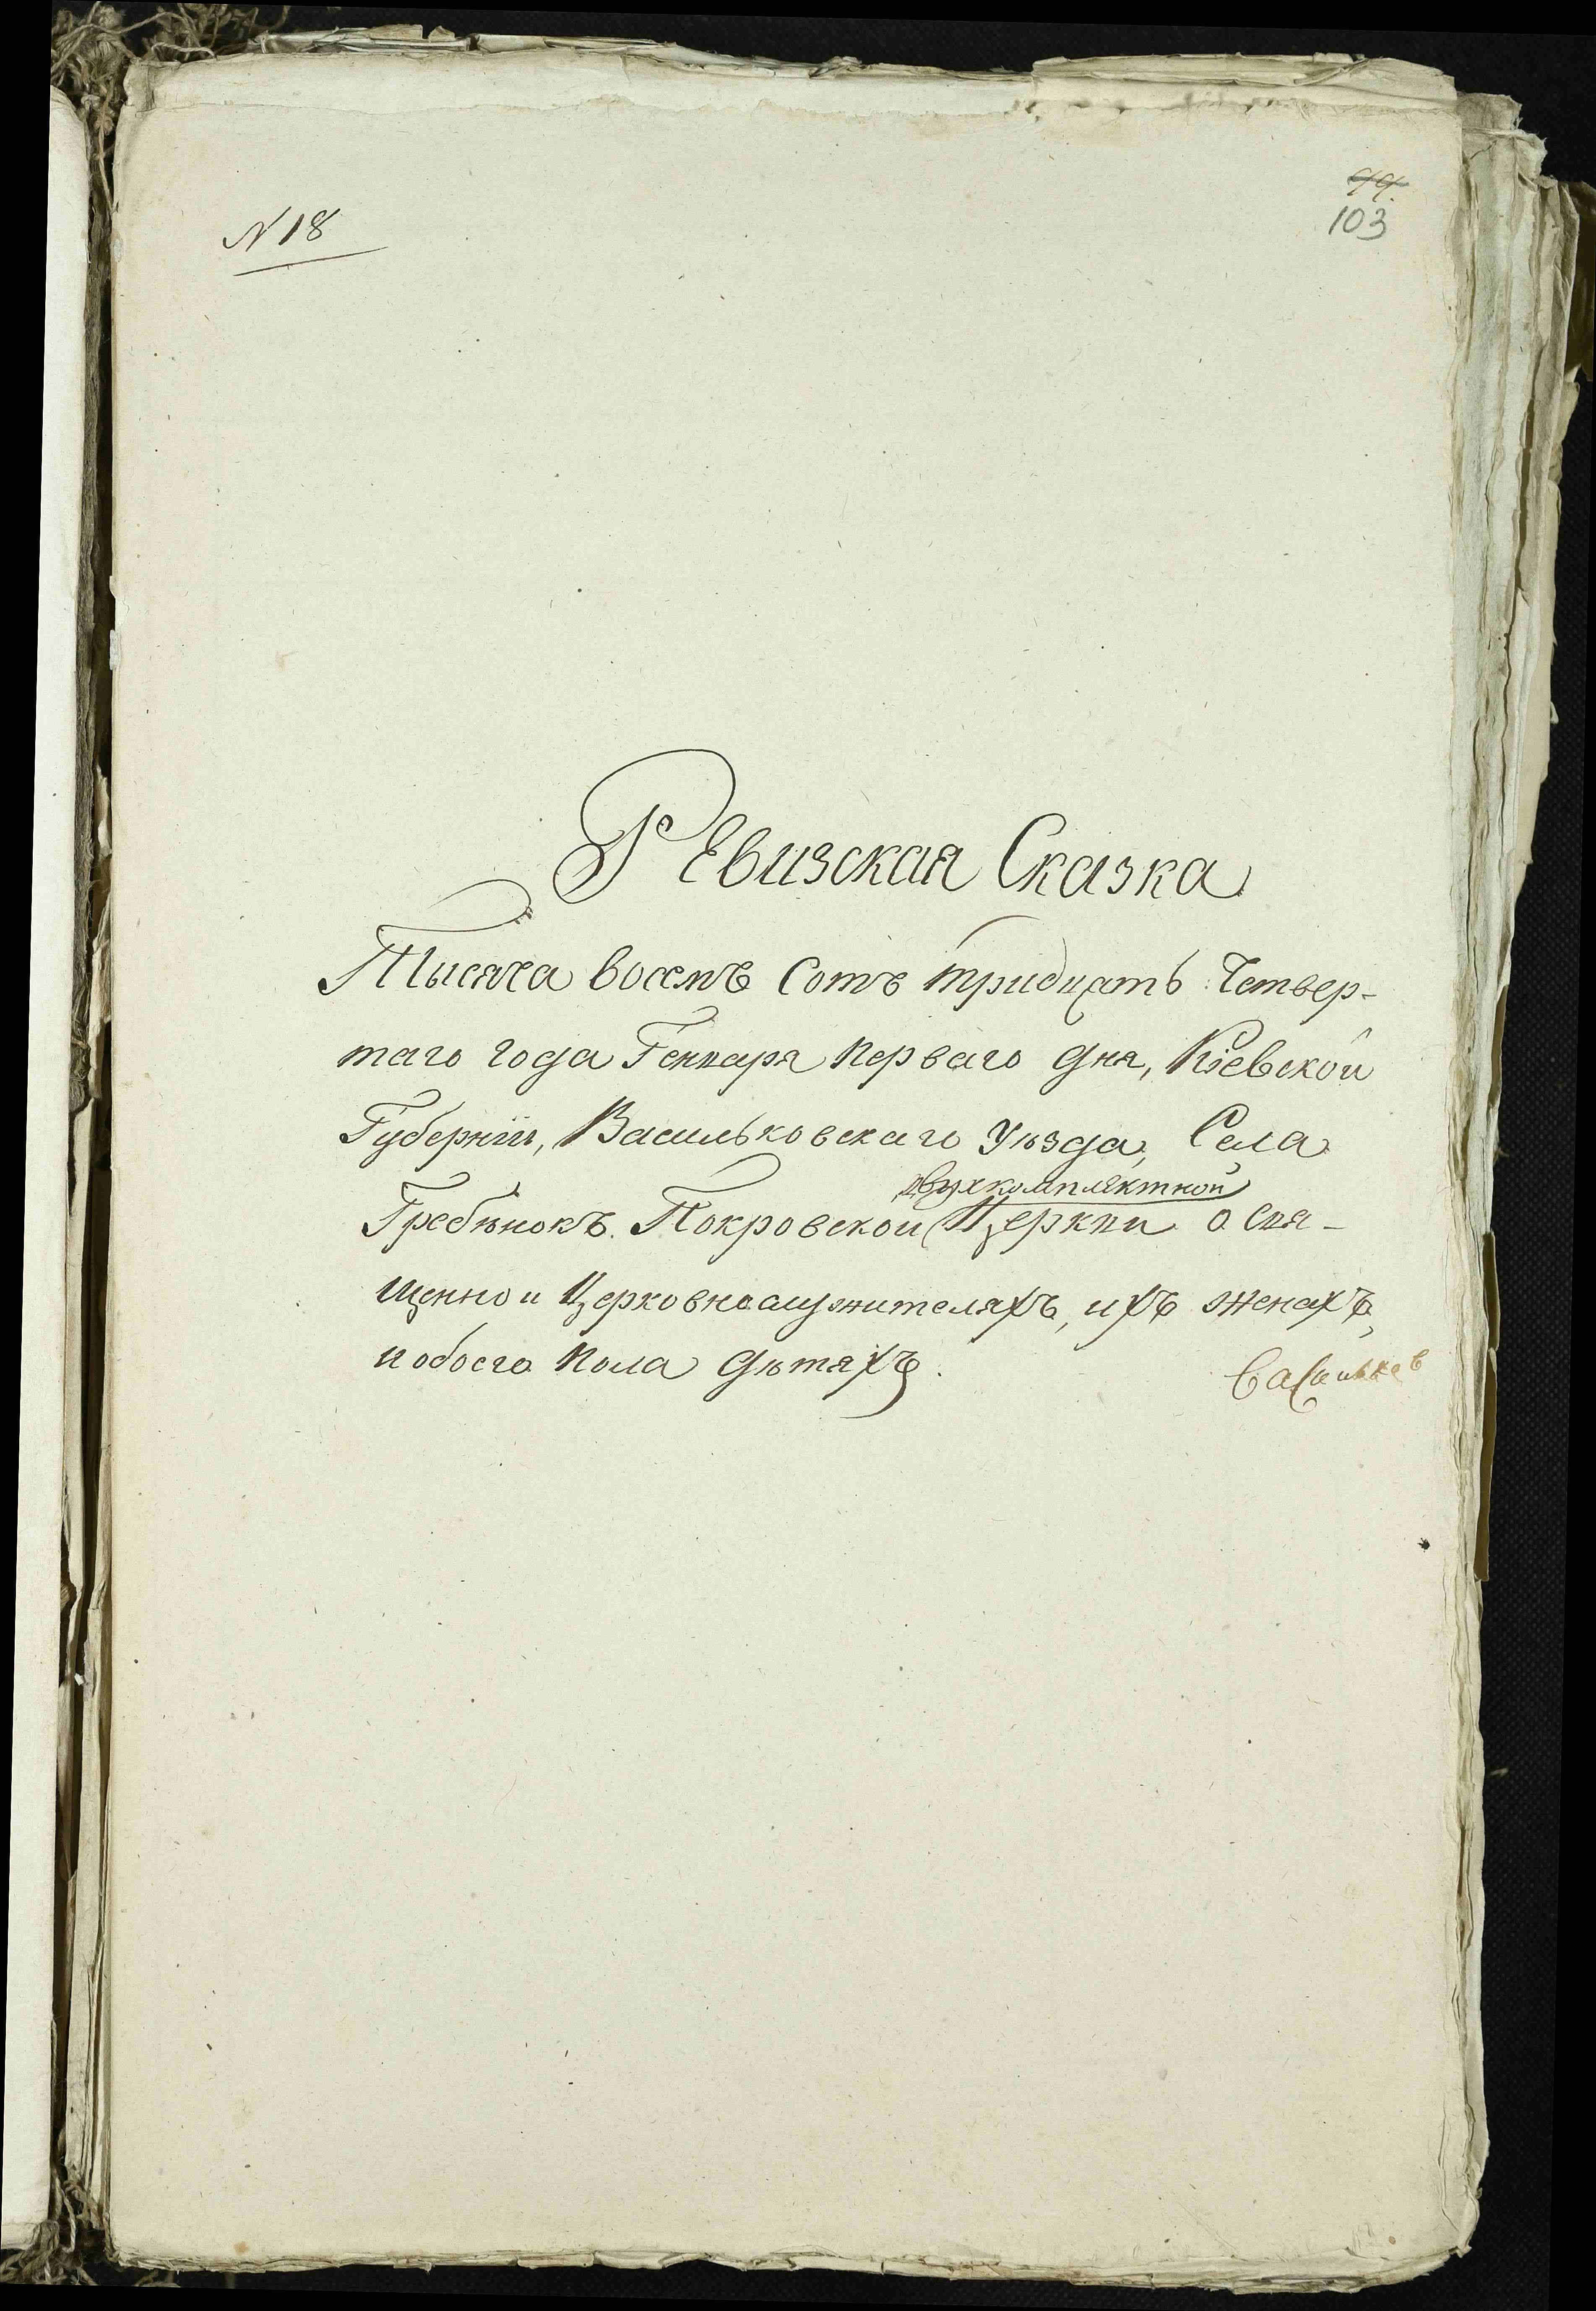 N 18
99.
103
Ревизская Сказка
Тысяча восемъ Сотъ тридцать Четвер-
таго года Генваря перваго дня, Кіевской
Губерніи, Васильковскаго уѣзда, Села
двухкомплектной
Гребѣнокъ. Покровской Церкви о Свя-
щенно и Церковнослужителяхъ, ихъ женахъ,
и обоего пола дѣтяхъ.